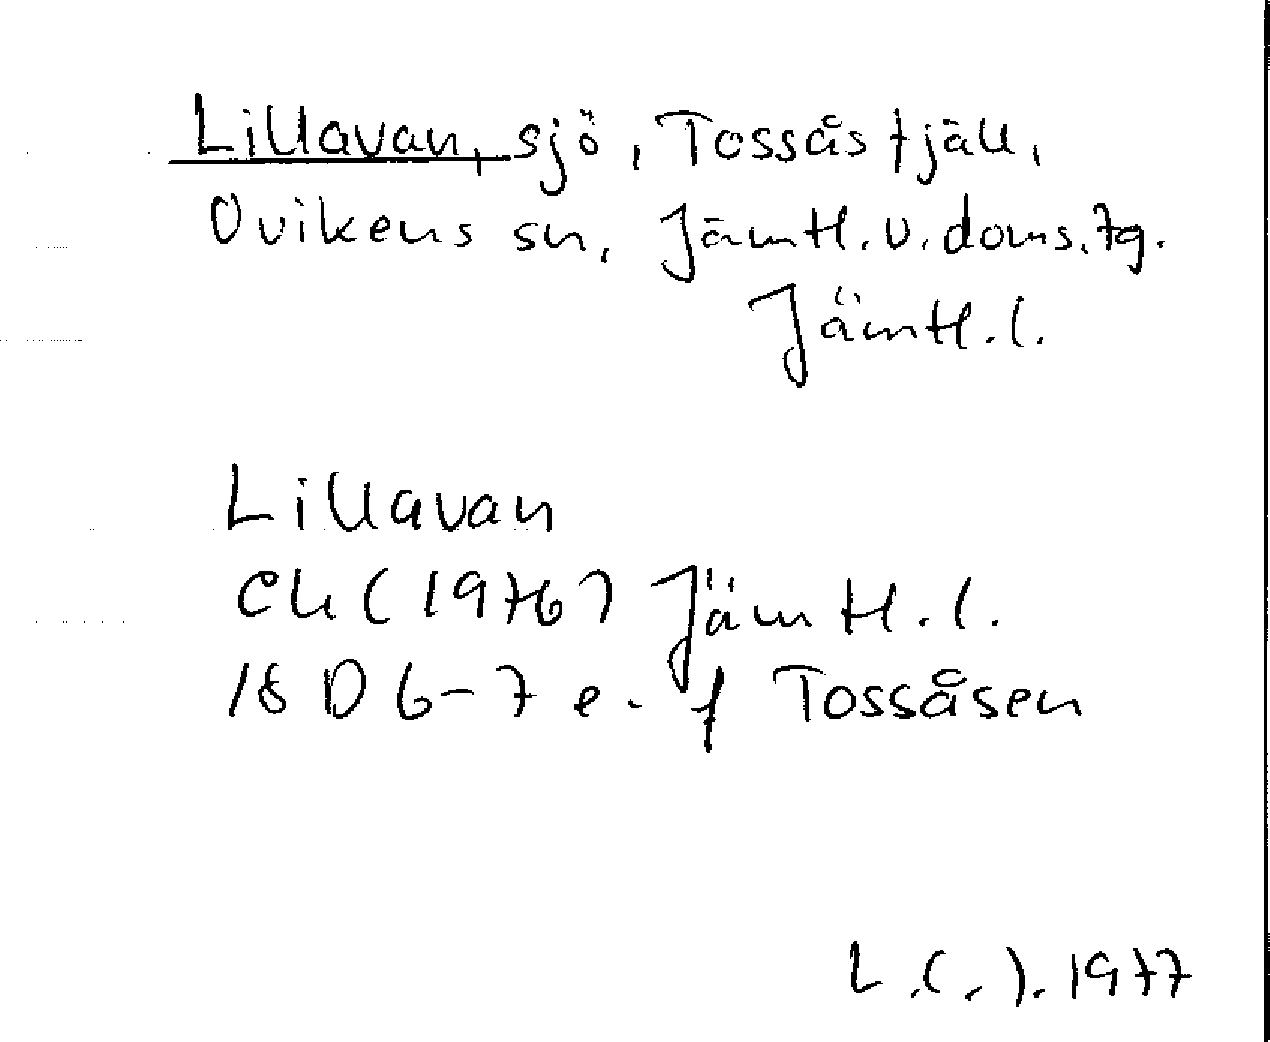 Lillavan, sjö, Tossås fjäll,
Ovikens sn, Jämtl. v. doms. tg.
Jämtl. l.
Lillavan
Ek (1976) Jämtl. l.
18 D 6-7 e. f Tossåsen
1977